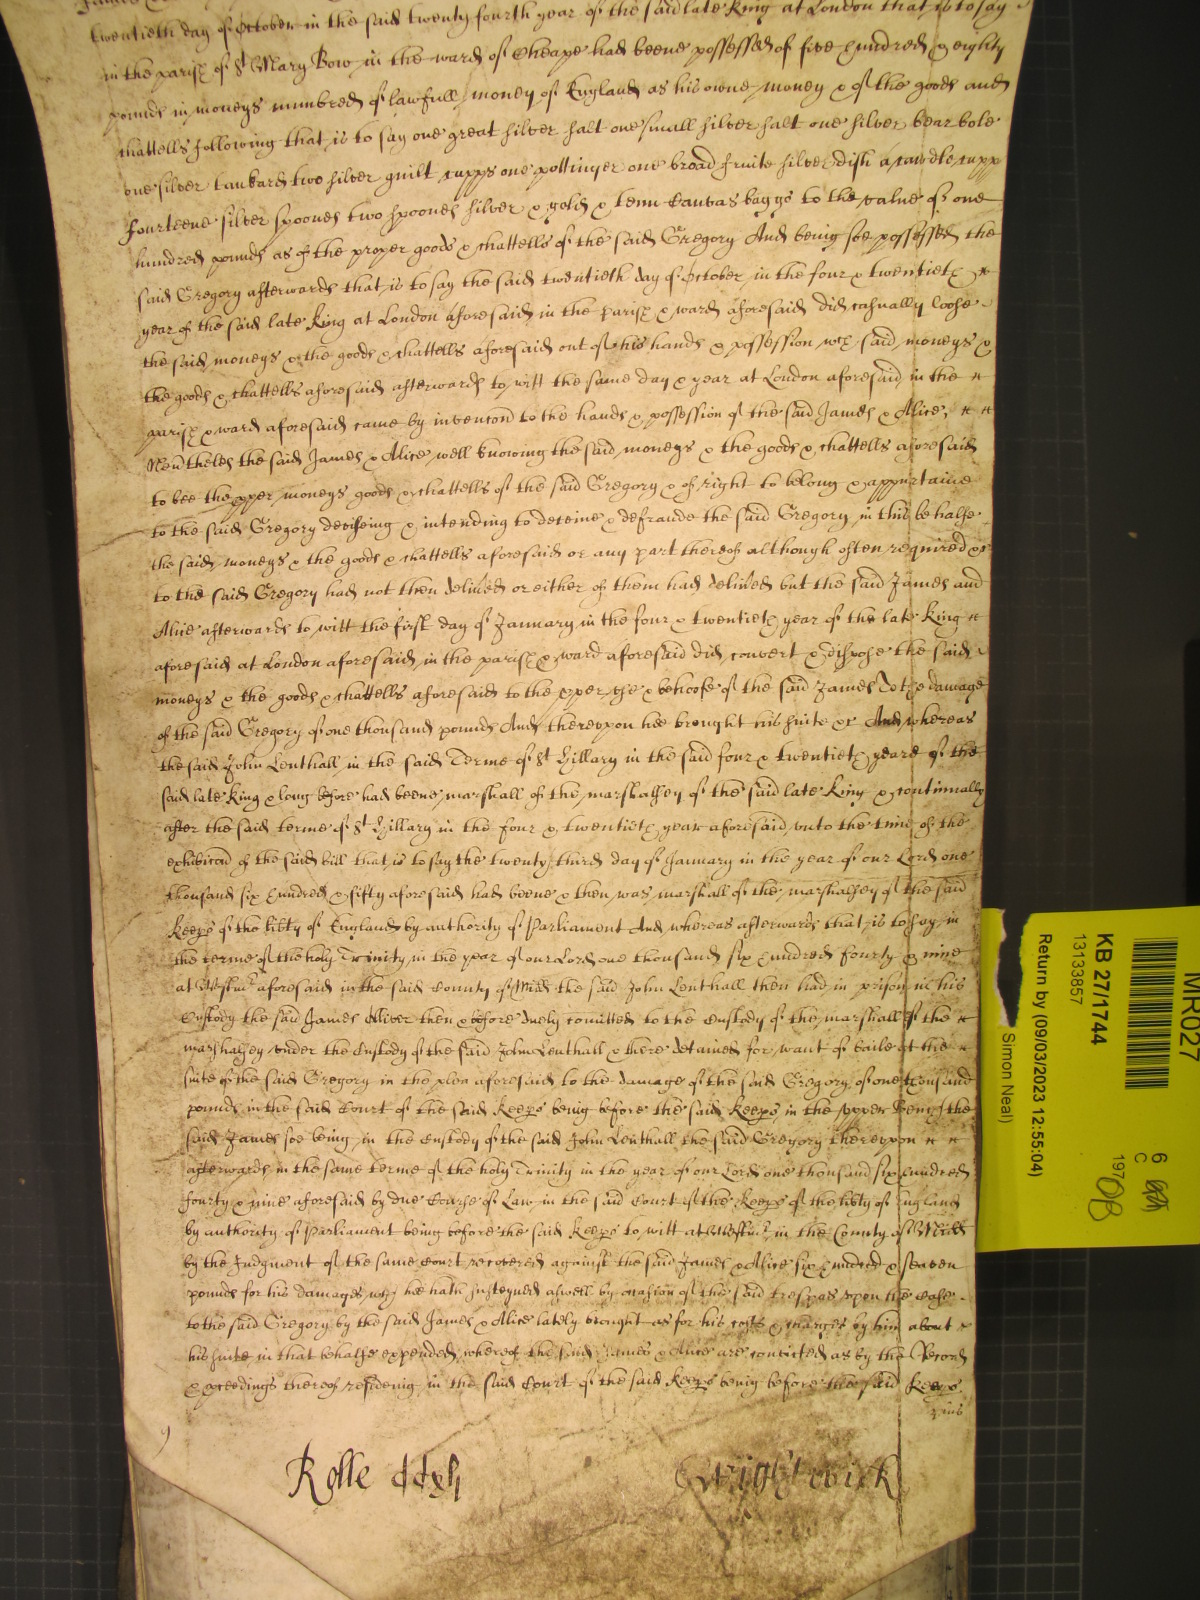 twentieth day of October in the said twenty fourth year of the said late King at London that is to say
in the parish of St Mary Bow in the ward of Cheape had beene possessed of five hundred & eighty
pounds in moneys numbred of lawfull money of England as his owne money & of the goods and
chattells following that is to say one great silver salt one small silver salt one silver bear bole
one silver tankard two silver guilt cupps one pottinger one broad fruite silver dish a cawdle cupp
fourteene silver spoones two spoones silver & gold & tenn Canvas baggs to the value of one
hundred pounds as of the proper goods & chattells of the said Gregory And being soe possessed the
said Gregory afterwards that is to say the said twentieth day of October in the four & twentieth
year of the said late King at London aforesaid in the parish & ward aforesaid did casually loose
the said moneys & the goods & chattells aforesaid out of his hands & possession wch said moneys &
the goods & chattells aforesaid afterwards to witt the same day & year at London aforesaid in the
parish & ward aforesaid came by invencon to the hands & possession of the said James & Alice,
Neutheles the said James & Alice well knowing the said moneys & the goods & chattells aforesaid
to bee the pper moneys goods & chattells of the said Gregory & of right to belong & appertaine
to the said Gregory devising & intending to deceive & defraude the said Gregory in this behalfe
the said moneys & the goods & chattells aforesaid or any part thereof although often required &c
to the said Gregory had not then delived or either of them had delived but the said James and
Alice afterwards to witt the first day of January in the four & twentieth year of the late King
aforesaid at London aforesaid in the parish & ward aforesaid did convert & dispose the said
moneys & the goods & chattells aforesaid to the pper use & behoofe of the said James To the damage
of the said Gregory of one thousand pounds And thereupon hee brought his suite &c And whereas
the said John Lenthall in the said Terme of St Hillary in the said four & twentieth yeare of the
said late King & long before had beene marshall of the marshalsey of the said late King & continually
after the said terme of St Hillary in the four & twentieth year aforesaid unto the time of the
exhibicon of the said bill that is to say the twenty third day of January in the year of our Lord one
thousand six hundred & fifty aforesaid had beene & then was marshall of the marshalsey of the said
Keeps of the libty of England by authority of Parliament And whereas afterwards that is to say in
the terme of the holy Trinity in the year of our Lord one thousand six hundred fourty & nine
at Westmr aforesaid in the said County of Midd the said John Lenthall then had in prison in his
Custody the said James Oliver then & before duely comitted to the Custody of the marshall of the
marshalsey under the Custody of the said John Lenthall & there detained for want of baile at the
suite of the said Gregory in the plea aforesaid to the damage of the said Gregory of one thousand
pounds in the said Court of the said Keeps being before the said Keeps in the upper Bench the
said James soe being in the Custody of the said John Lenthall the said Gregory thereupon
afterwards in the same terme of the holy Trinity in the year of our Lord one thousand six hundred
fourty & nine aforesaid by due Course of Law in the said Court of the Keeps of the libty of England
by authority of Parliament being before the said Keeps to witt at Westmr in the County of Midd
by the Judgment of the same Court recovered against the said James & Alice six hundred & seaven
pounds for his damages wch hee hath susteyned aswell by occasion of the said trespas upon the Case
to the said Gregory by the said James & Alice lately brought as for his costs & charges by him about
his suite in that behalfe expended whereof the said James & Alice are convicted as by the Record
& pceedings thereof residenig in the said Court of the said Keeps being before the said Keeps
Rolle
Wrightwick
MR027
KB 27/1744
13133857
Return by (09/03/2023 12:55:04)
Simon Neal)
6
C
197